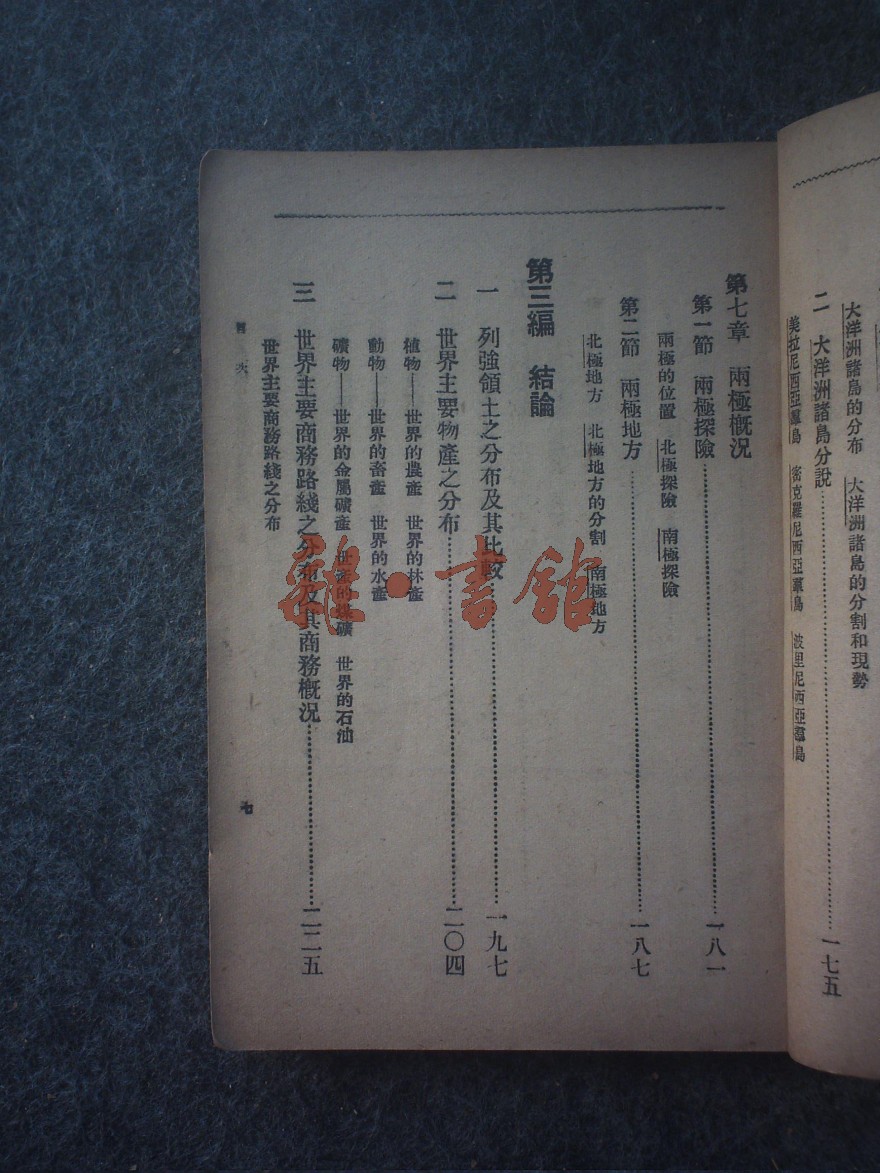 大洋洲諸島的分布　大洋洲諸島的分割和現勢
二　大洋洲諸島分說……一七五
美拉尼西亞羣島　密克羅尼西亞羣島　波里尼西亞羣島
第七章　兩極概況
第一節　兩極探險……一八一
兩極的位置　北極探險　南極探險
第二節　兩極地方……一八七
北極地方　北極地方的分割　南極地方
第三編　結論
一　列強領土之分布及其比較……一九七
二　世界主要物產之分布……二〇四
植物——世界的農產　世界的林產
動物——世界的畜產　世界的水產
礦物——世界的金屬礦產　世界的煤礦　世界的石油
三　世界主要商務路綫之分布及其商務概況……二二五
世界主要商務路綫之分布
目次
七
雜·書館